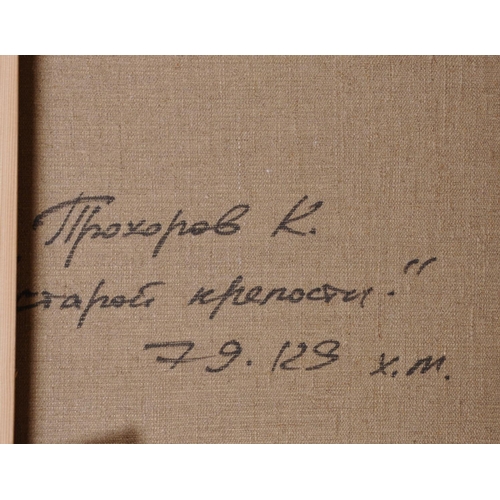 Прохоров К.
старой крепости."
79.129 х.м.